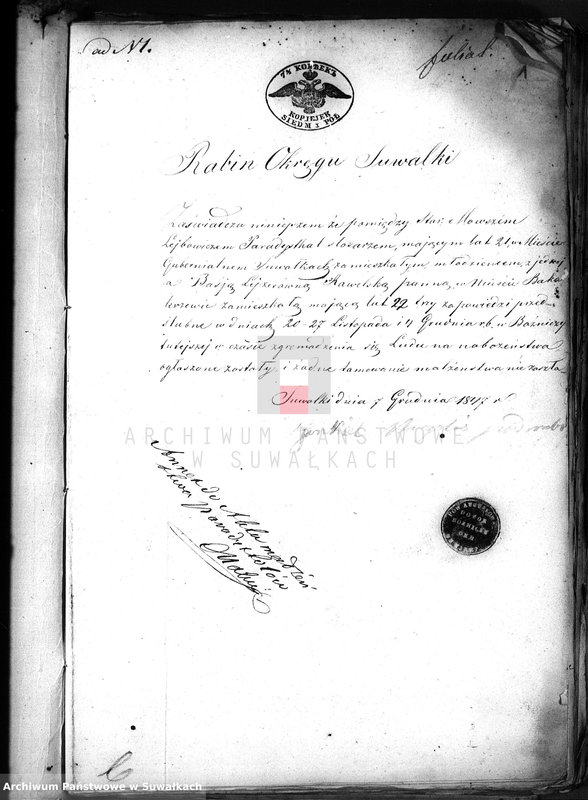 ad N 1.
folial.
1
7½ КОПѢЕКЪ
KOPIEJEK
SIEDM i PÓŁ
Rabin Okręgu Suwalki
Zaświadcza niniejszem że pomiędzy Star. Mowszem
Lejbowiczem Paradysthal stolarzem, mającym lat 21, w Mieście
Gubernialnem Suwałkach zamieszkałym, młodzieńcem z jednej
a Basją Lejzerówną Kawelską panną, w Mieście Baka
łarzewie zamieszkałą mającą lat 22 trzy zapowiedzi przed
ślubne w dniach 20-27 Listopada i 4 Grudnia r.b. w Bożnicy
tutejszej w czasie zgromadzenia się Ludu na nabożeństwa
ogłaszone zostały, i żadne tamowanie małżeństwa nie zaszło
Suwałki dnia 7 Grudnia 1847 r
ARCHIWUM PAŃSTWOWE
W SUWAŁKACH
Annex do Aktu
Archiwum Państwowe w Suwałkach